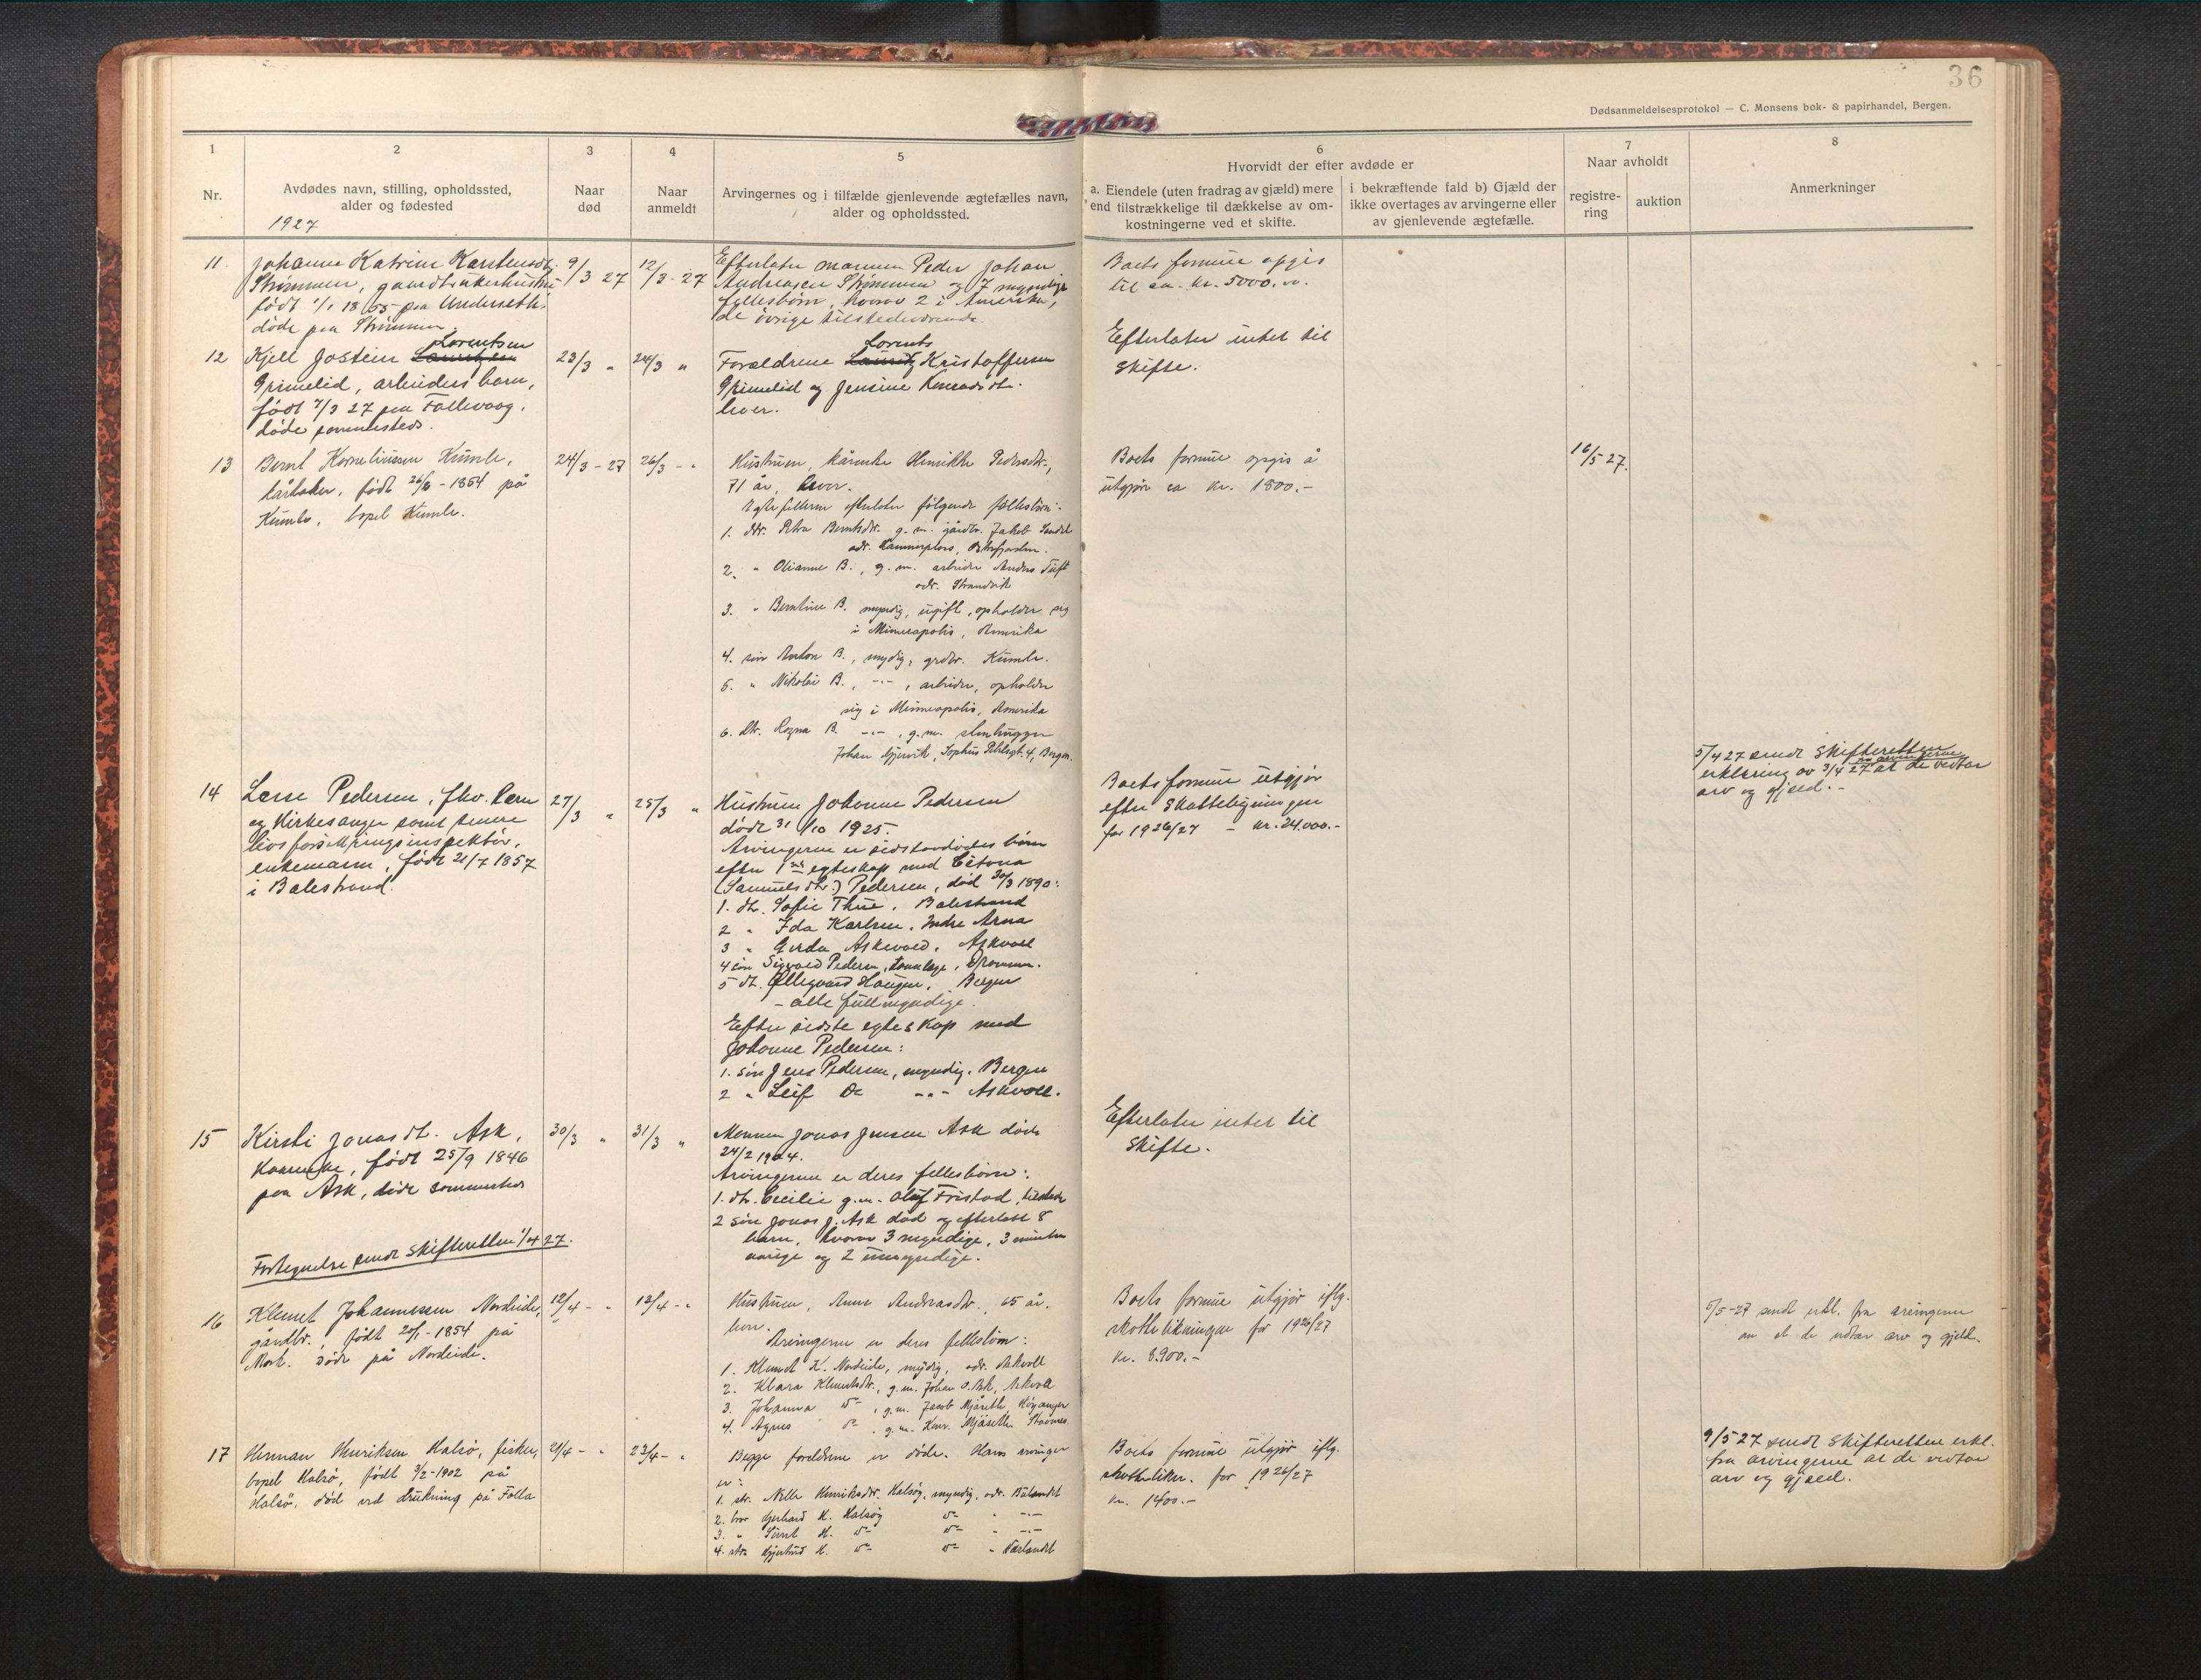 36
Dødsanmeldelsesprotokol — C. Monsens bok- & papirhandel, Bergen.
1
2
3
4
5
6
7
8
Nr.
Avdødes navn, stilling, opholdssted,
alder og fødested
1927
Naar
død
Naar
anmeldt
Arvingernes og i tilfælde gjenlevende ægtefælles navn,
alder og opholdssted.
Hvorvidt der efter avdøde er
a. Eiendele (uten fradrag av gjæld) mere
end tilstrækkelige til dækkelse av om-
kostningerne ved et skifte.
i bekræftende fald b) Gjæld der
ikke overtages av arvingerne eller
av gjenlevende ægtefælle.
Naar avholdt
registre-
ring
auktion
Anmerkninger
11
Johanne Katrine Karstensdtr.
Strømmen, gaardbrukerhustru
født 1/1 1855 paa
døde paa Strømmen.
9/3 27
12/3 - 27
Efterlater mannen Peder Johan
Andreasen Strømmen og 7 myndige
fellesbørn, hvorav 2 i Amerika,
de øvrige tilstedeværende.
Boets formue opgis
til ca. kr. 5000.00.
12
Kjell Jostein Lorentsen
Grimelid, arbeiders barn,
født 7/3 27 paa Follevaag.
døde sammesteds.
23/3 "
24/3 "
Foreldrene Lorents Kristoffersen
Grimelid og Jensine Konradsdtr.
lever.
Efterlater intet til
skifte.
13
Bernt Korneliussen Kumle,
kårtaker, født 1854 på
Kumle, bopel Kumle.
24/3 - 27
26/3 - "
Hustruen, kårenke Henrikke Pedersdtr.,
71 år, lever.
Egtefellerne efterlater følgende fellesbørn:
1. dtr. Petra Berntsdtr. g.m. gårdbr. Jakob
adr.
2. " Olianne B., g.m. arbeider Anders Tuft
adr. Strandvik
3. " Berntine B. myndig, ugift, opholder sig
i Minneapolis, Amerika
4. søn Anton B., myndig, grdbr. Kumle.
5. " Nikolai B., -"-, arbeider, opholder
sig i Minneapolis, Amerika
6. dtr. Ragna B. -"-, g.m. stenhugger
Johan Gjervik, Sophus 4, Bergen.
Boets formue opgis å
utgjøre ca kr. 1800.-
16/5 27.
14
Lasse Pedersen, fhv. lærer
og kirkesanger samt senere
livsforsikringsinspektør,
enkemann, født 21/7 1857
i Balestrand.
27/3 "
25/3 "
Hustruen Johanne Pedersen
døde 31/10 1925.
Arvingerne er sidstavdødes børn
efter 1ste egteskap med
(Samuelsdtr.) Pedersen, død 30/3 1890:
1. dtr. Sofie Thue, Balestrand
2 " Ida Karlsen, Indre Arna
3 " Gerda Askevold, Askvoll
4 søn Sigvald Pedersen, tannlæge,
5 dtr. Haugen, Bergen
- alle fullmyndige.
Efter sidste egteskap med
Johanne Pedersen:
1. søn Jens Pedersen, myndig, Bergen
2 " Leif Do -"- Askvoll.
Boets formue utgjør
efter skatteligningen
for 1926/27 - kr. 24.000.-
5/4 27 sendt skifteretten
erklæring av 3/4 27 fra arvingerne at de vedtar
arv og gjæld.-
15
Kirsti Jonasdtr. Ask,
kaarenke, født 25/9 1846
paa Ask, døde sammesteds
30/3 "
31/3 "
Mannen Jonas Jensen Ask døde
24/2 1904.
Arvingerne er deres fellesbørn:
1. dtr. Cecilie g.m. Oluf Fristad, tilstede
2 søn Jonas J. Ask død og efterlatt 8
barn, hvorav 3 myndige, 3 mindre
aarige og 2 umyndige.
Efterlater intet til
skifte.
Fortegnelse sendt skifteretten 1/4 27.
16
Klemet Johannessen Nordeide,
gårdbr., født 20/1 - 1854 på
døde på Nordeide.
12/4 - "
13/4 - "
Hustruen, Anne Andreasdtr., 65 år.
lever.
Arvingerne er deres fellesbørn:
1. Klemet K. Nordeide, myndig, adr. Askvoll
2. Klara Klemetsdtr., g.m. Johan O. Ask, Askvoll
3. Johanna do , g.m. Jacob Mjåseth, Høyanger
4. Agnes do , g.m. Konr. Mjåseth
Boets formue utgjør iflg.
skattelikningen for 1926/27
kr. 8.900.-
5/5-27 sendt erkl. fra arvingerne
om at de vedtar arv og gjeld.
17
Herman Henriksen Halsø, fisker,
bopel Halsø, født 3/2-1902 på
Halsø, død ved drukning på Folla
21/4 - "
23/4 - "
Begge foreldrene er døde. Hans arvinger
er:
1. str. Nelle Henriksdtr. Halsøy, myndig, adr. Bulandet
2. bror Gerhard H. Halsøy do " -"-
3. " H. do do " -"-
4. str. Gjertrud H. do do " Værlandet
Boets formue utgjør iflg.
skattelikn. for 1926/27
kr. 1400.-
9/5 27 sendt skifteretten erkl.
fra arvingerne at de vedtar
arv og gjæld.